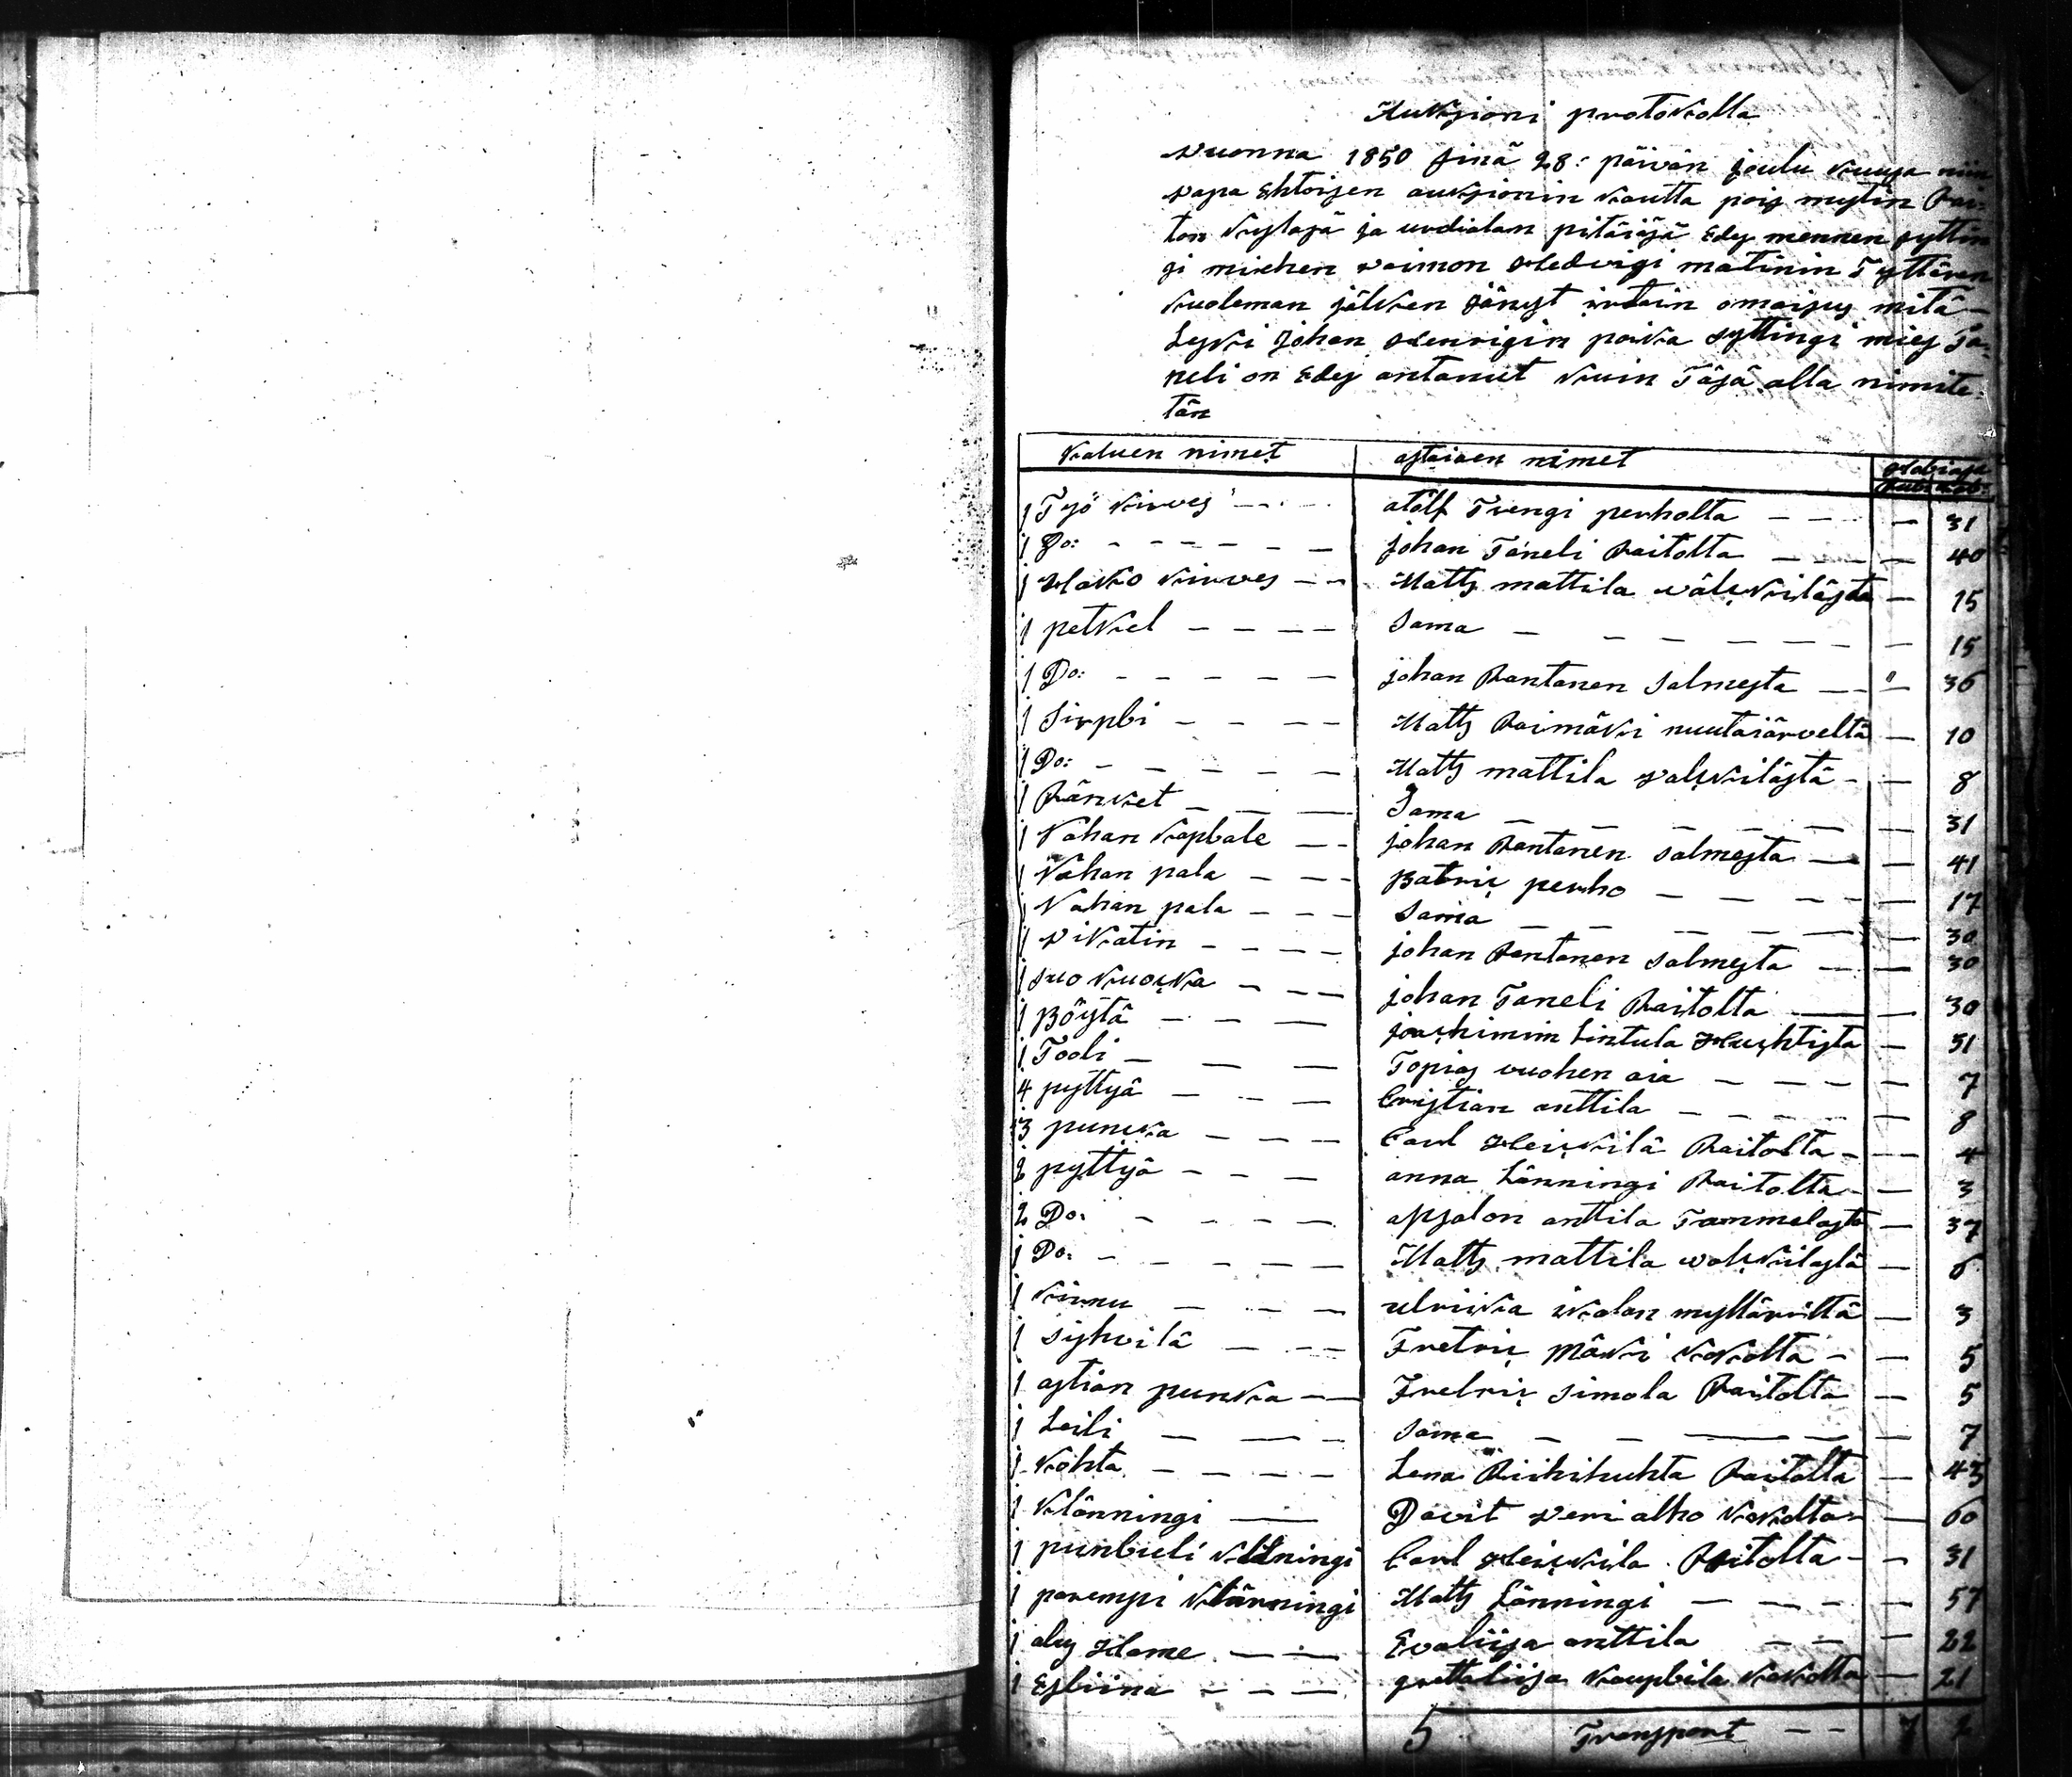 Auksioni protokolla
vuonna 1850 sinä 28: päivän joulu kuusa niin
vapa Ehtoisen auksionin kautta pois mytin Rai-
ton kyläsä ja urdialan pitäjäsä Edes mennen syttin
gi miehen vaimon Hedvigi matinin Tyttären
kuoleman jälken jänyt irdain omaisus mitä
Leski Johan Henrigin poika syttingi mies Ta-
neli on Edes antanut kuin Täsä alla nimite-
tän
kaluen nimet ostaiaen nimet
1 Työ kirves — atolf Trengi perholta — 31
1 Do: — johan Taneli Raitolta — 40
1 Hako kirves — Matts mattila välkkilästä — 15
1 petkel — Sama — 15
1 Do: — johan Rantanen Salmesta — " — 36
1 Sirpbi — Matts Raimäki nuutaiärveltä — 10
1 Do: — Matts mattila valkkilästä — 8
1 Ränket — Sama — 31
1 Nahan kapbale — johan Rantanen salmesta — 41
1 Nahan pala — Batrik perho — 17
1 Nahan pala — Sama — 30
1 vikatin — johan Rantanen salmesta — 30
1 suo kuokka — johan Taneli Raitolta — 30
1 Böytä — joachimim Lintula Huhtista — 31
1 Tooli — Topias vuohen oia — 7
4 pyttyä — Cristian anttila — 8
3 punkka — Carl Heikkilä Raitolta — 4
2 pyttyä — anna Länningi Raitolta — 3
2 Do: — apsalon anttila Tammelasta — 37
1 Do: — Matts mattila valkkilasta — 6
1 kirnu — ulriika ikalan mylläriltä — 3
1 syhvilä — Fretrik Mäki kokolta — 5
1 astian punka — Fretrik simola Raitolta — 5
1 Leili — Sama — 7
1 kohta — Lena Riihihuhta Raitolta — 43
1 klänningi — Davit veri alho kokolta — 60
1 punbuli klänningi Carl Heikkila Raitolta — 31
1 parempi klänningi Matts Länningi — 57
1 alus Hame — Evaliisa anttila — 22
1 Esliina — grettaliisa kaupbila kokolta — 21
5 Transport — 7 2